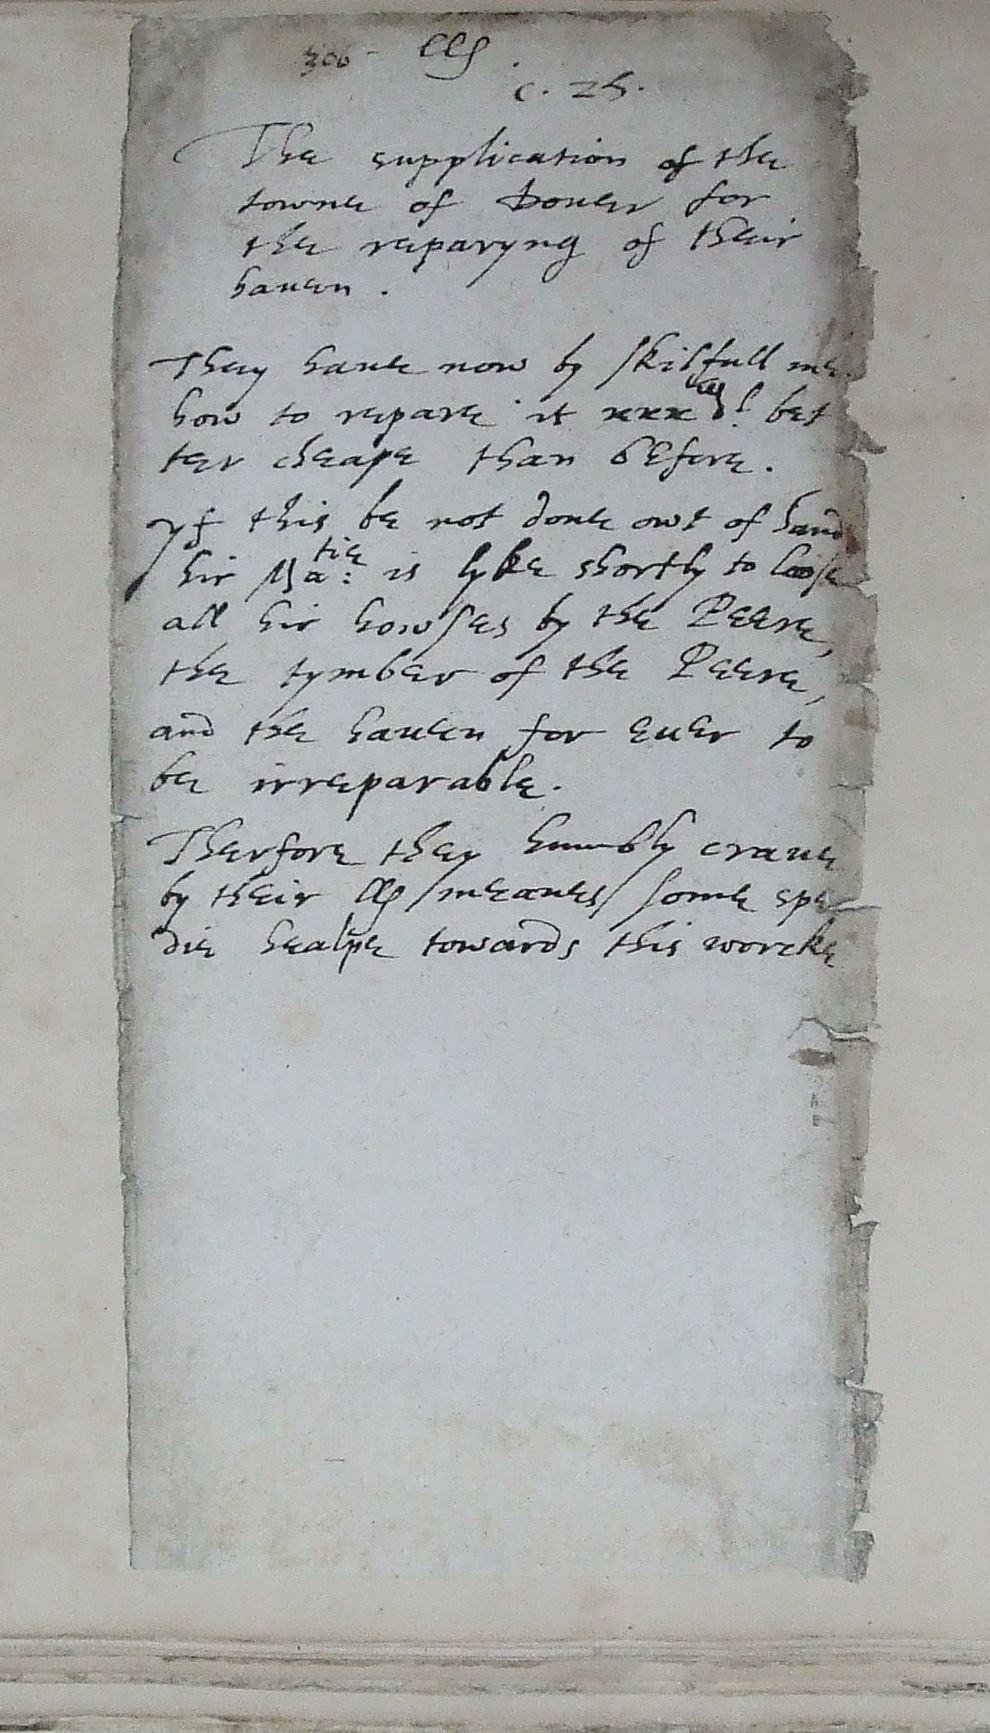 306 - LLs
c. 25.
The supplication of the
towne of Douer for
the reparyng of their
hauen.
They haue now by skilfull me
how to repare it xxx l bet
ter cheape than before.
yf this be not done owt of hand
hir Matie: is lyke shortly to loose
all hir howses by the Peere,
the tymber of the Peere,
and the hauen for euer to
be irreparable.
Therfore they humbly craue
by their LLs meanes some spe
die healpe towards this worcke